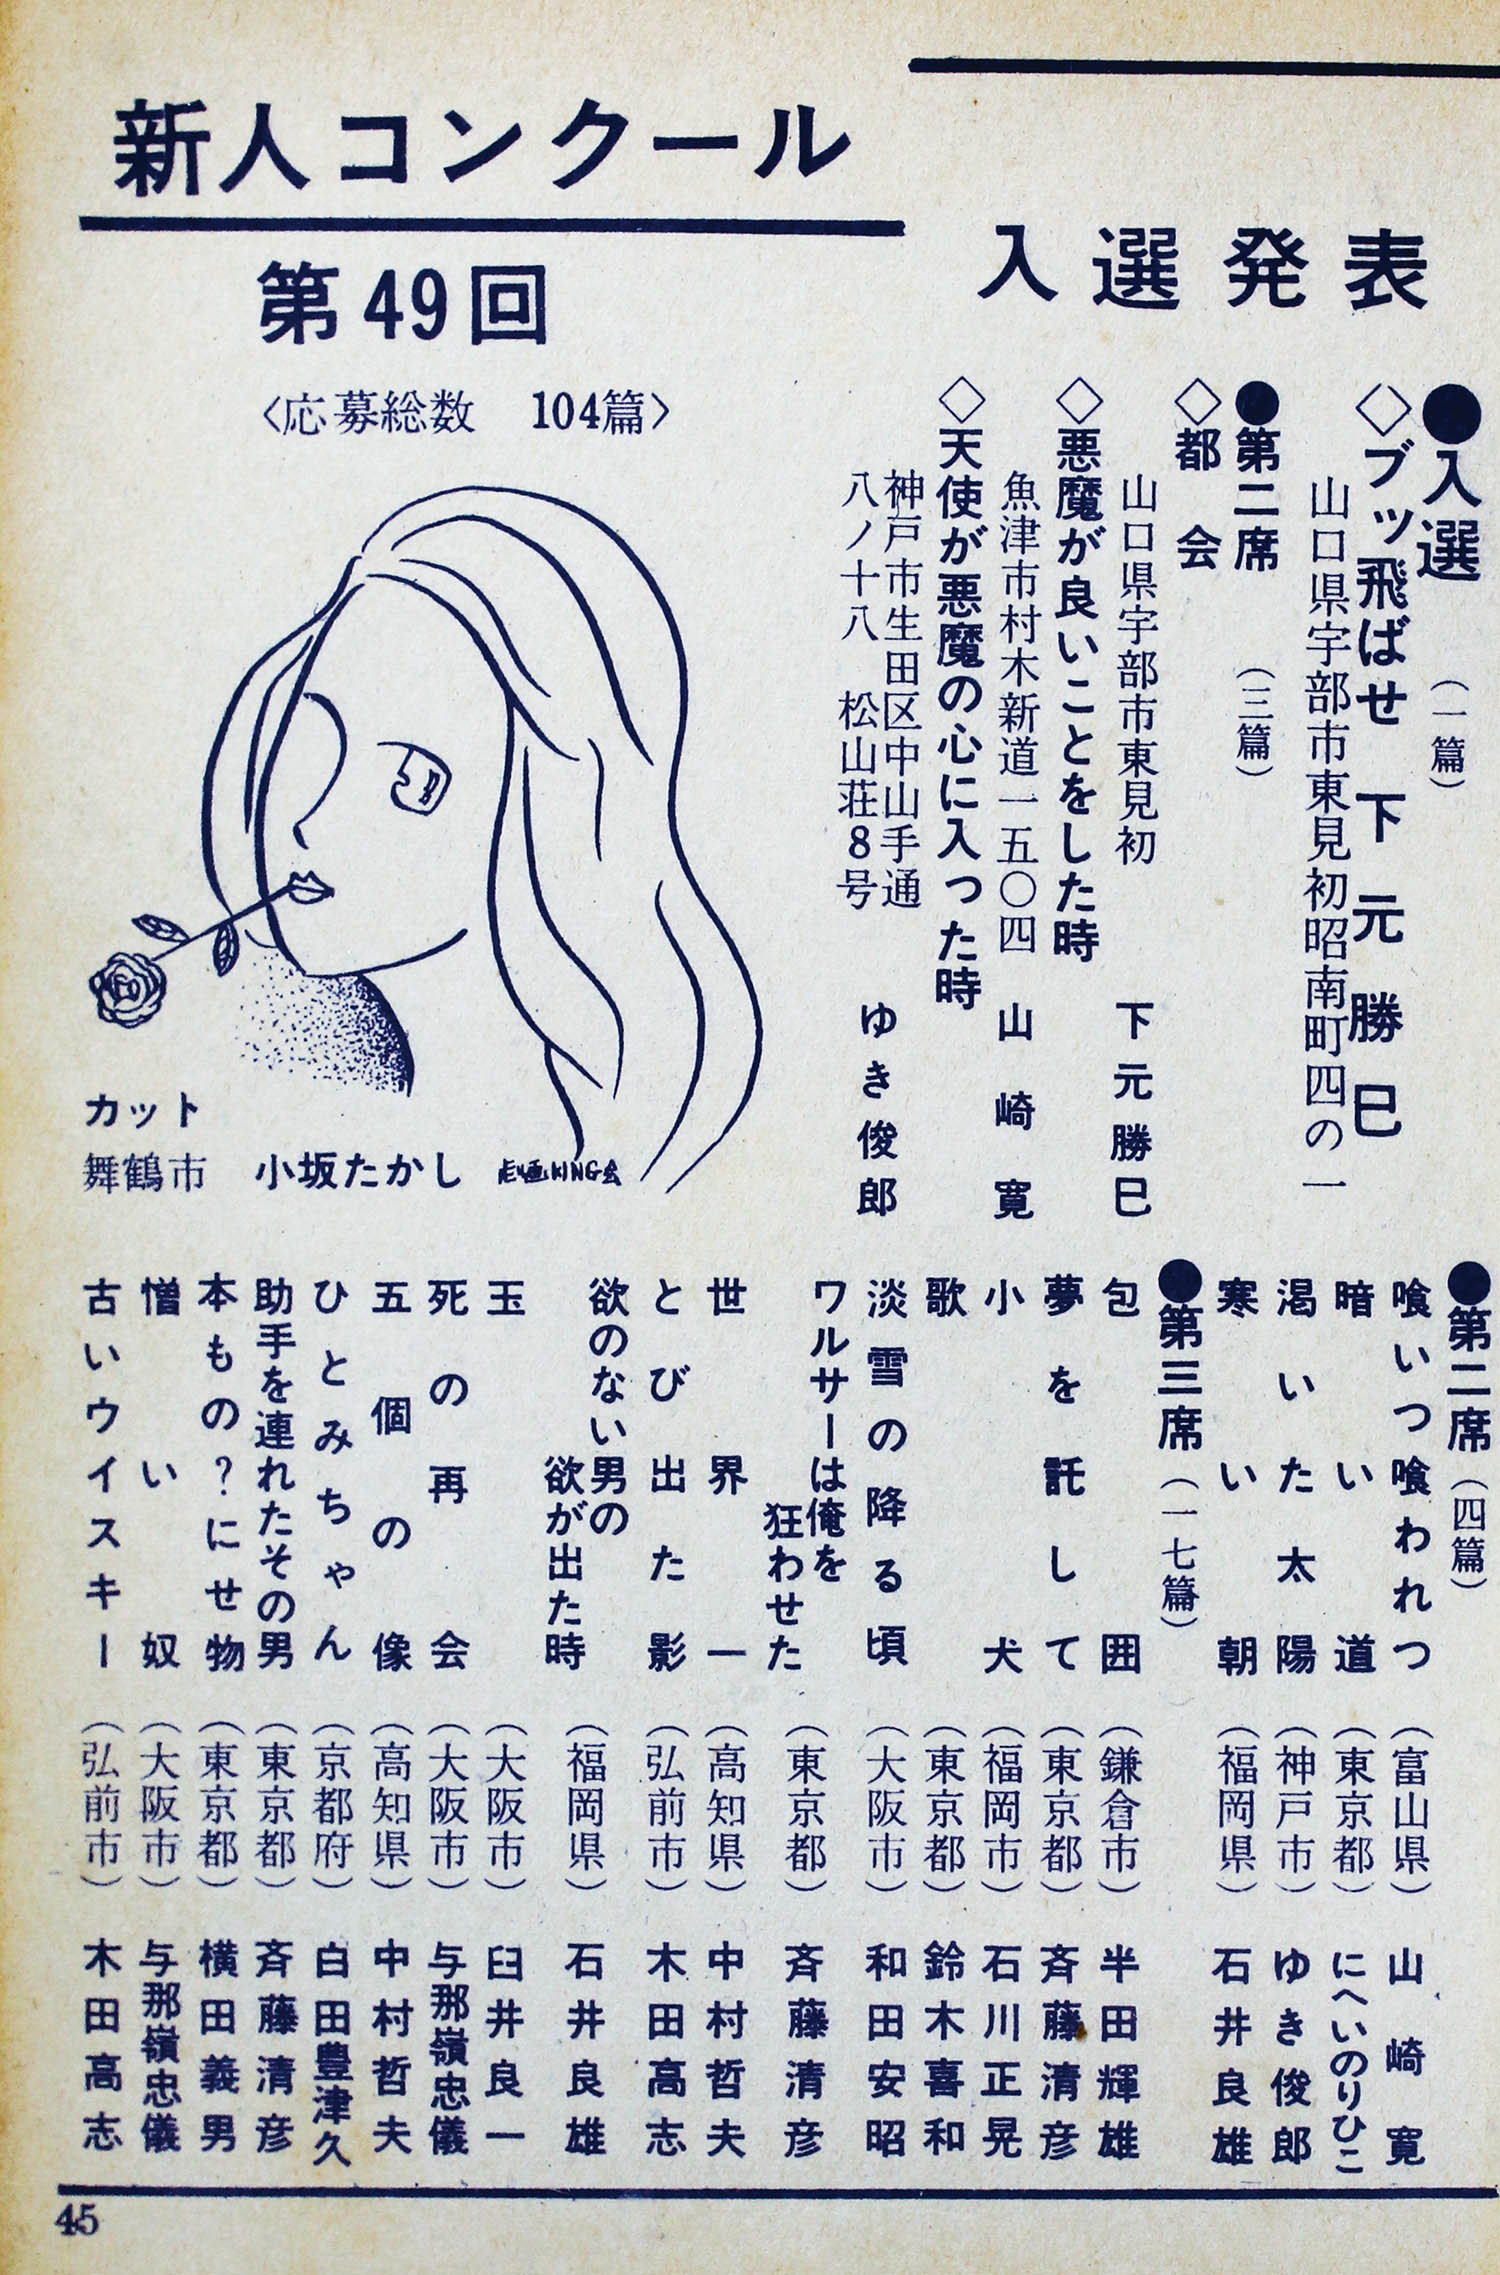 新人コンクール
第49回
〈応募総数　104篇〉
入選発表
●入選　（一篇）
◇ブッ飛ばせ　下元勝巳
山口県宇部市東見初昭南町四の一
●第二席　（三篇）
◇都会
山口県宇部市東見初　下元勝巳
◇悪魔が良いことをした時
魚津市村木新道一五〇四　山崎寛
◇天使が悪魔の心に入った時
神戸市生田区中山手通
八ノ十八　松山荘8号　ゆき俊郎
カット
舞鶴市　小坂たかし
●第二席（四篇）
喰いつ喰われつ（富山県）山崎寛
暗い道（東京都）にへいのりひこ
渇いた太陽（神戸市）ゆき俊郎
寒い朝（福岡県）石井良雄
●第三席（一七篇）
包囲（鎌倉市）半田輝雄
夢を託して（東京都）斉藤清彦
小犬（福岡市）石川正晃
歌（東京都）鈴木喜和
淡雪の降る頃（大阪市）和田安昭
ワルサーは俺を
狂わせた（東京都）斉藤清彦
世界一（高知県）中村哲夫
とび出た影（弘前市）木田高志
欲のない男の
欲が出た時（福岡県）石井良雄
玉（大阪市）臼井良一
死の再会（大阪市）与那嶺忠儀
五個の像（高知県）中村哲夫
ひとみちゃん（京都府）白田豊津久
助手を連れたその男（東京都）斉藤清彦
本もの？にせ物（東京都）横田義男
憎い奴（大阪市）与那嶺忠儀
古いウイスキー（弘前市）木田高志
45